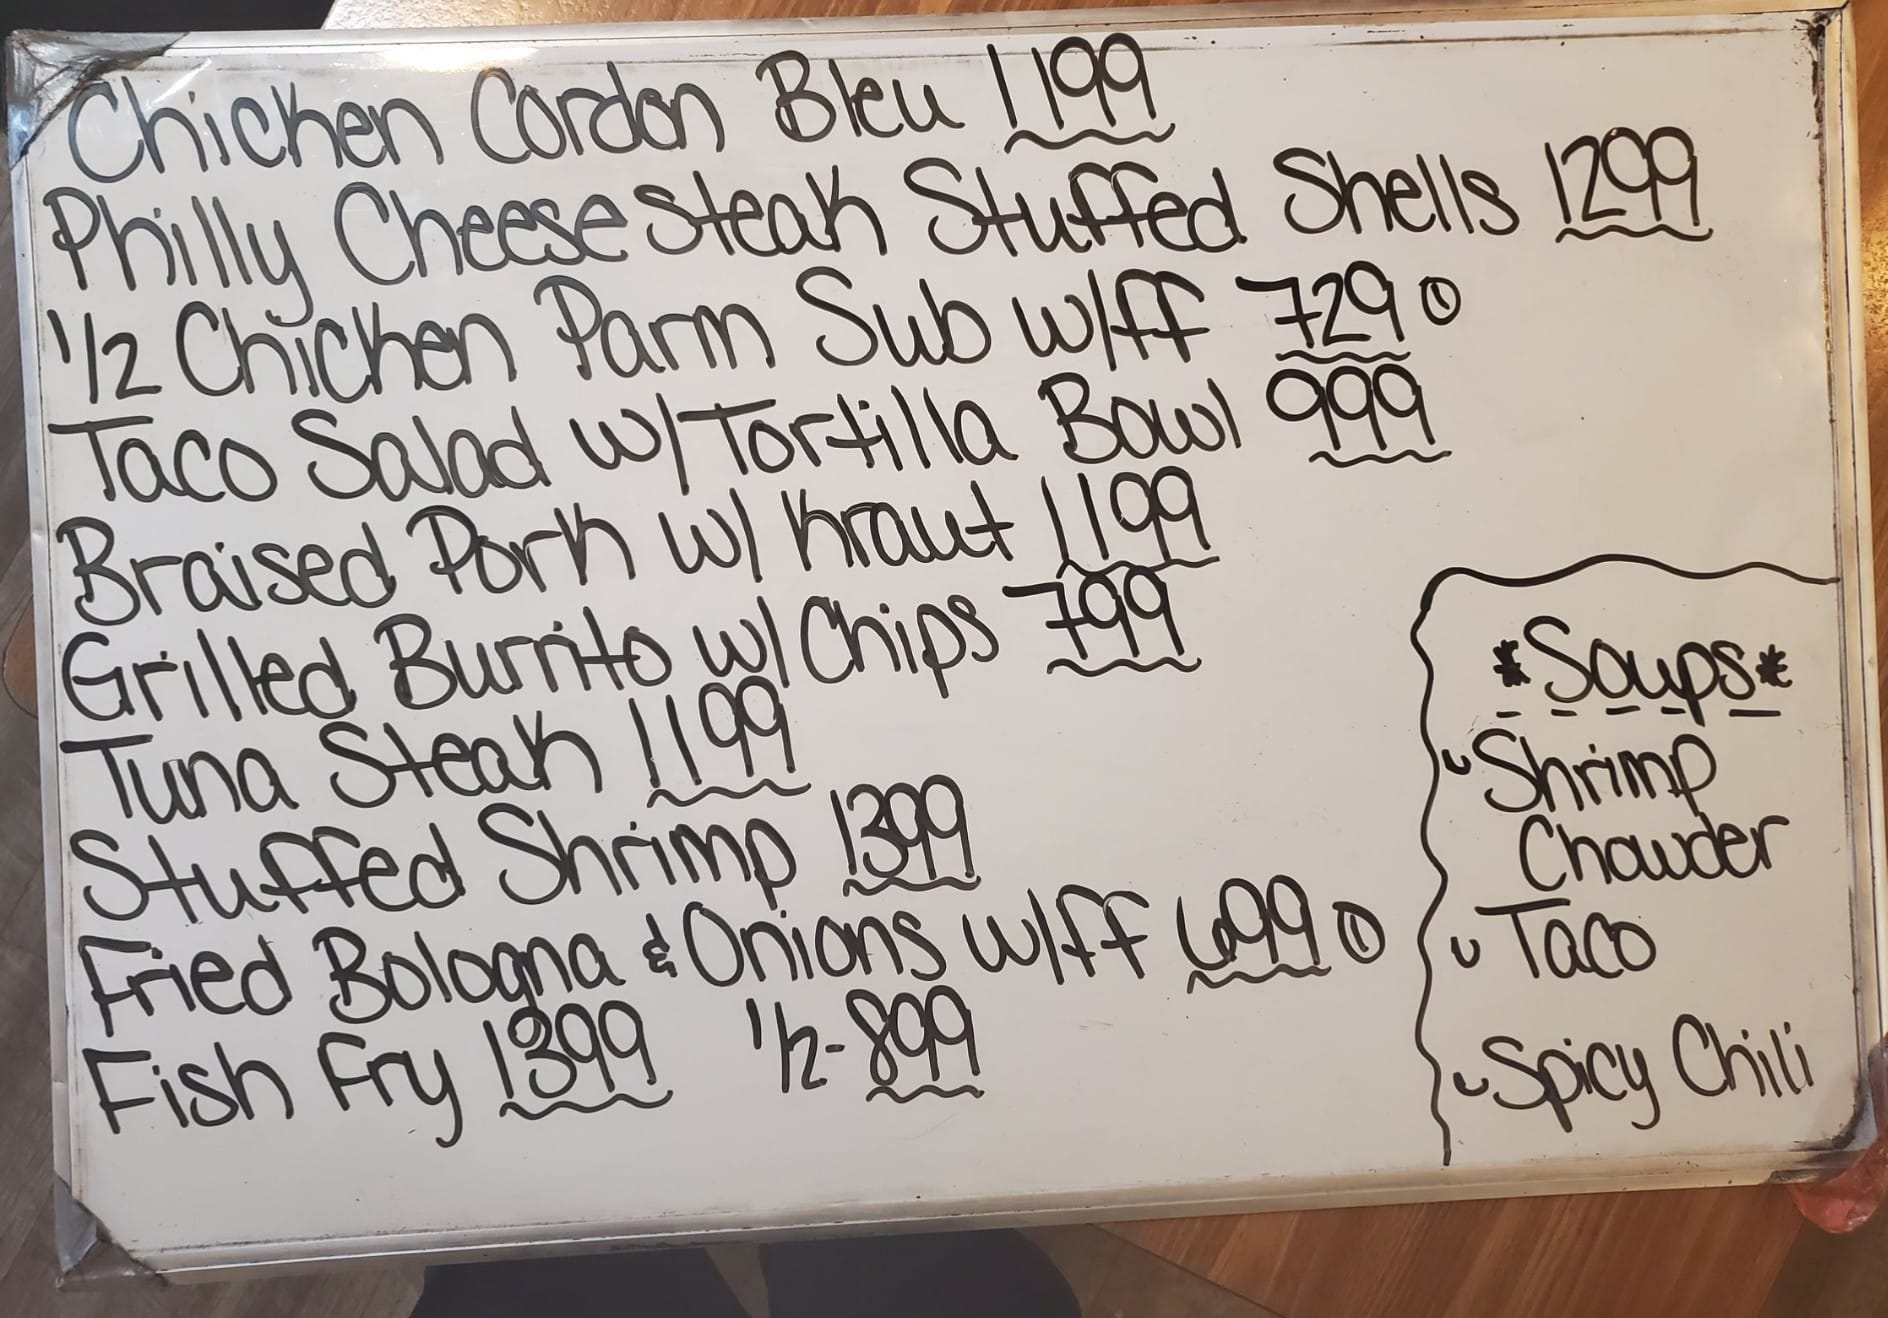 Chicken Cordon Bleu 1199
Philly Cheesesteak Stuffed Shells 1299
1/2 Chicken Parm Sub w/ff 729 ①
Taco Salad w/Tortilla Bowl 999
Braised Pork w/ Kraut 1199
Grilled Burrito w/Chips 799
Tuna Steak 1199
Stuffed Shrimp 1399
Fried Bologna & Onions w/ff 699 ①
Fish Fry 1399 1/2-899
*Soups*
Shrimp
Chowder
Taco
Spicy Chili